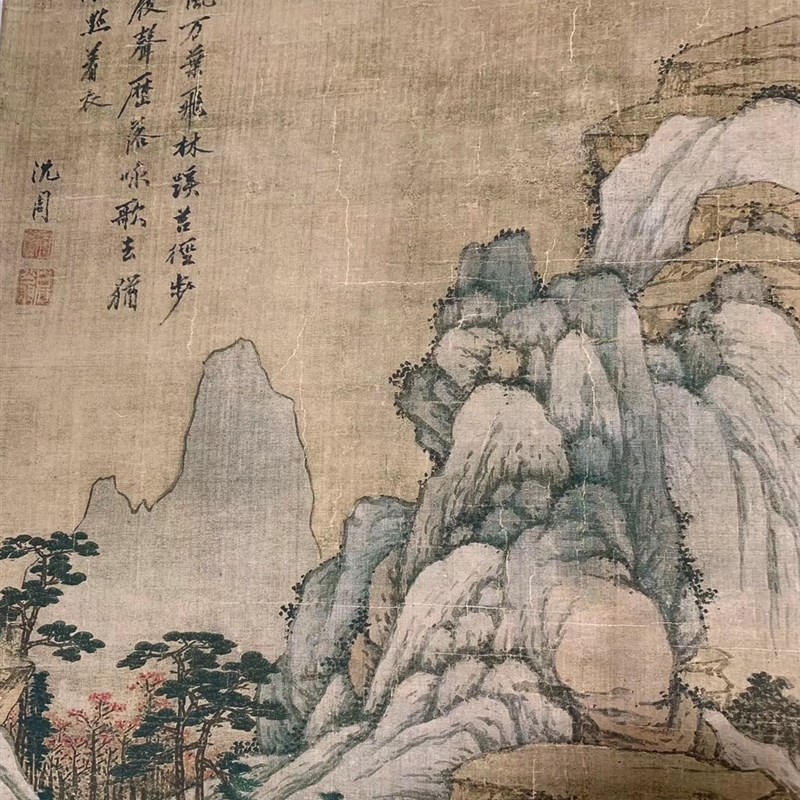 風万葉飛林蹊苔徑步
屐聲歷落咏歌去猶
點着衣
沈周